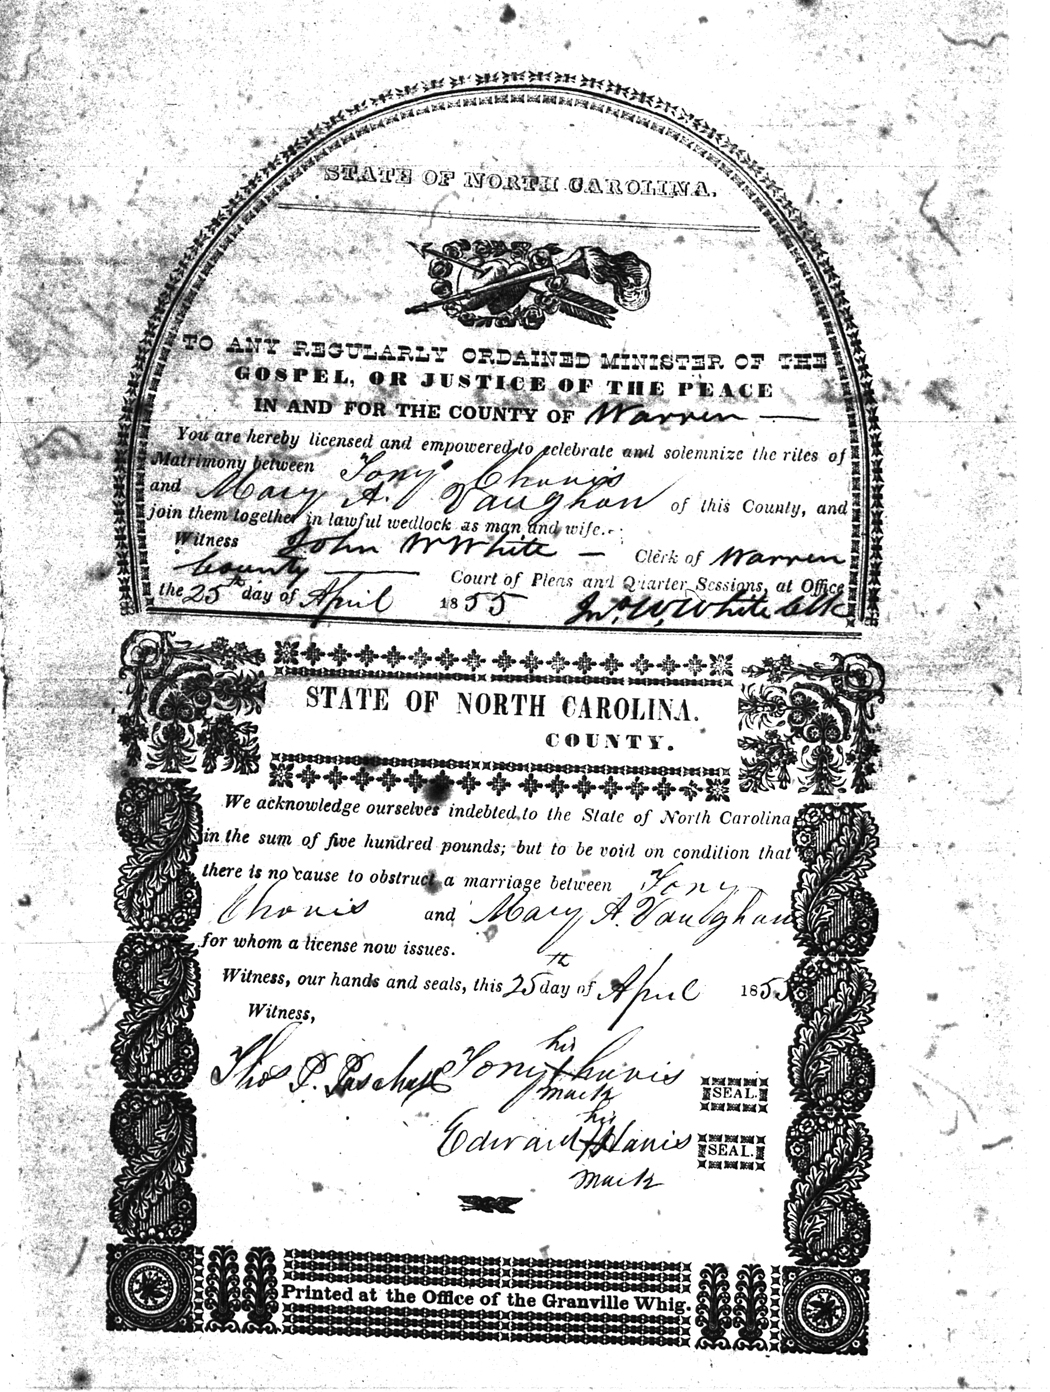 STATE OF NORTH CAROLINA.
TO ANY REGULARLY ORDAINED MINISTER OF THE
GOSPEL, OR JUSTICE OF THE PEACE
IN AND FOR THE COUNTY OF Warren
You are hereby licensed and empowered to celebrate and solemnize the rites of
Matrimony between Tony Chavis
and Mary A. Vaughan of this County, and
join them together in lawful wedlock as man and wife.
Witness John W White Clerk of Warren
County Court of Pleas and Quarter Sessions, at Office
the 25th day of April 1855 Jno. W. White Clk
STATE OF NORTH CAROLINA.
COUNTY.
We acknowledge ourselves indebted to the State of North Carolina
in the sum of five hundred pounds; but to be void on condition that
there is no cause to obstruct a marriage between Tony
Chavis and Mary A. Vaughan
for whom a license now issues.
Witness, our hands and seals, this 25th day of April 1855
Witness,
his
Thos P. Paschall Tony Chavis SEAL.
mark
his
Edward SEAL.
mark
Printed at the Office of the Granville Whig.